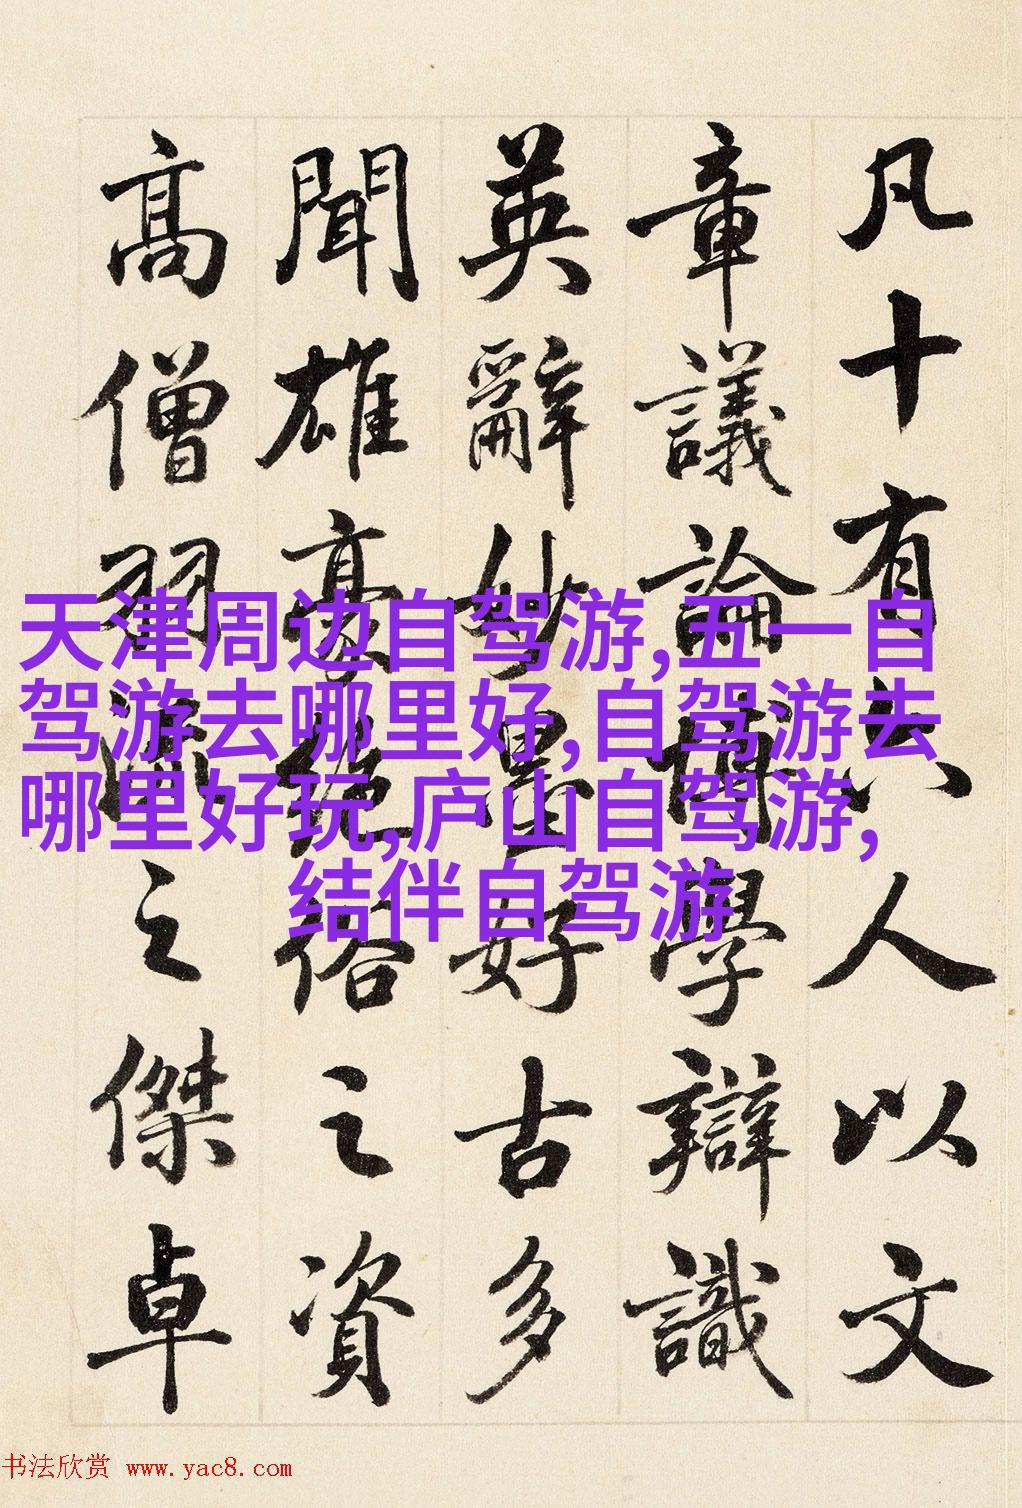 凡十有六人以文
章議論博學辯識
英辭妙墨好古多
聞雄豪絕俗之資
高僧羽流之傑卓
天津周边自驾游,五一自
驾游去哪里好,自驾游去
哪里好玩,庐山自驾游,
结伴自驾游
书法欣赏 www.yac8.com